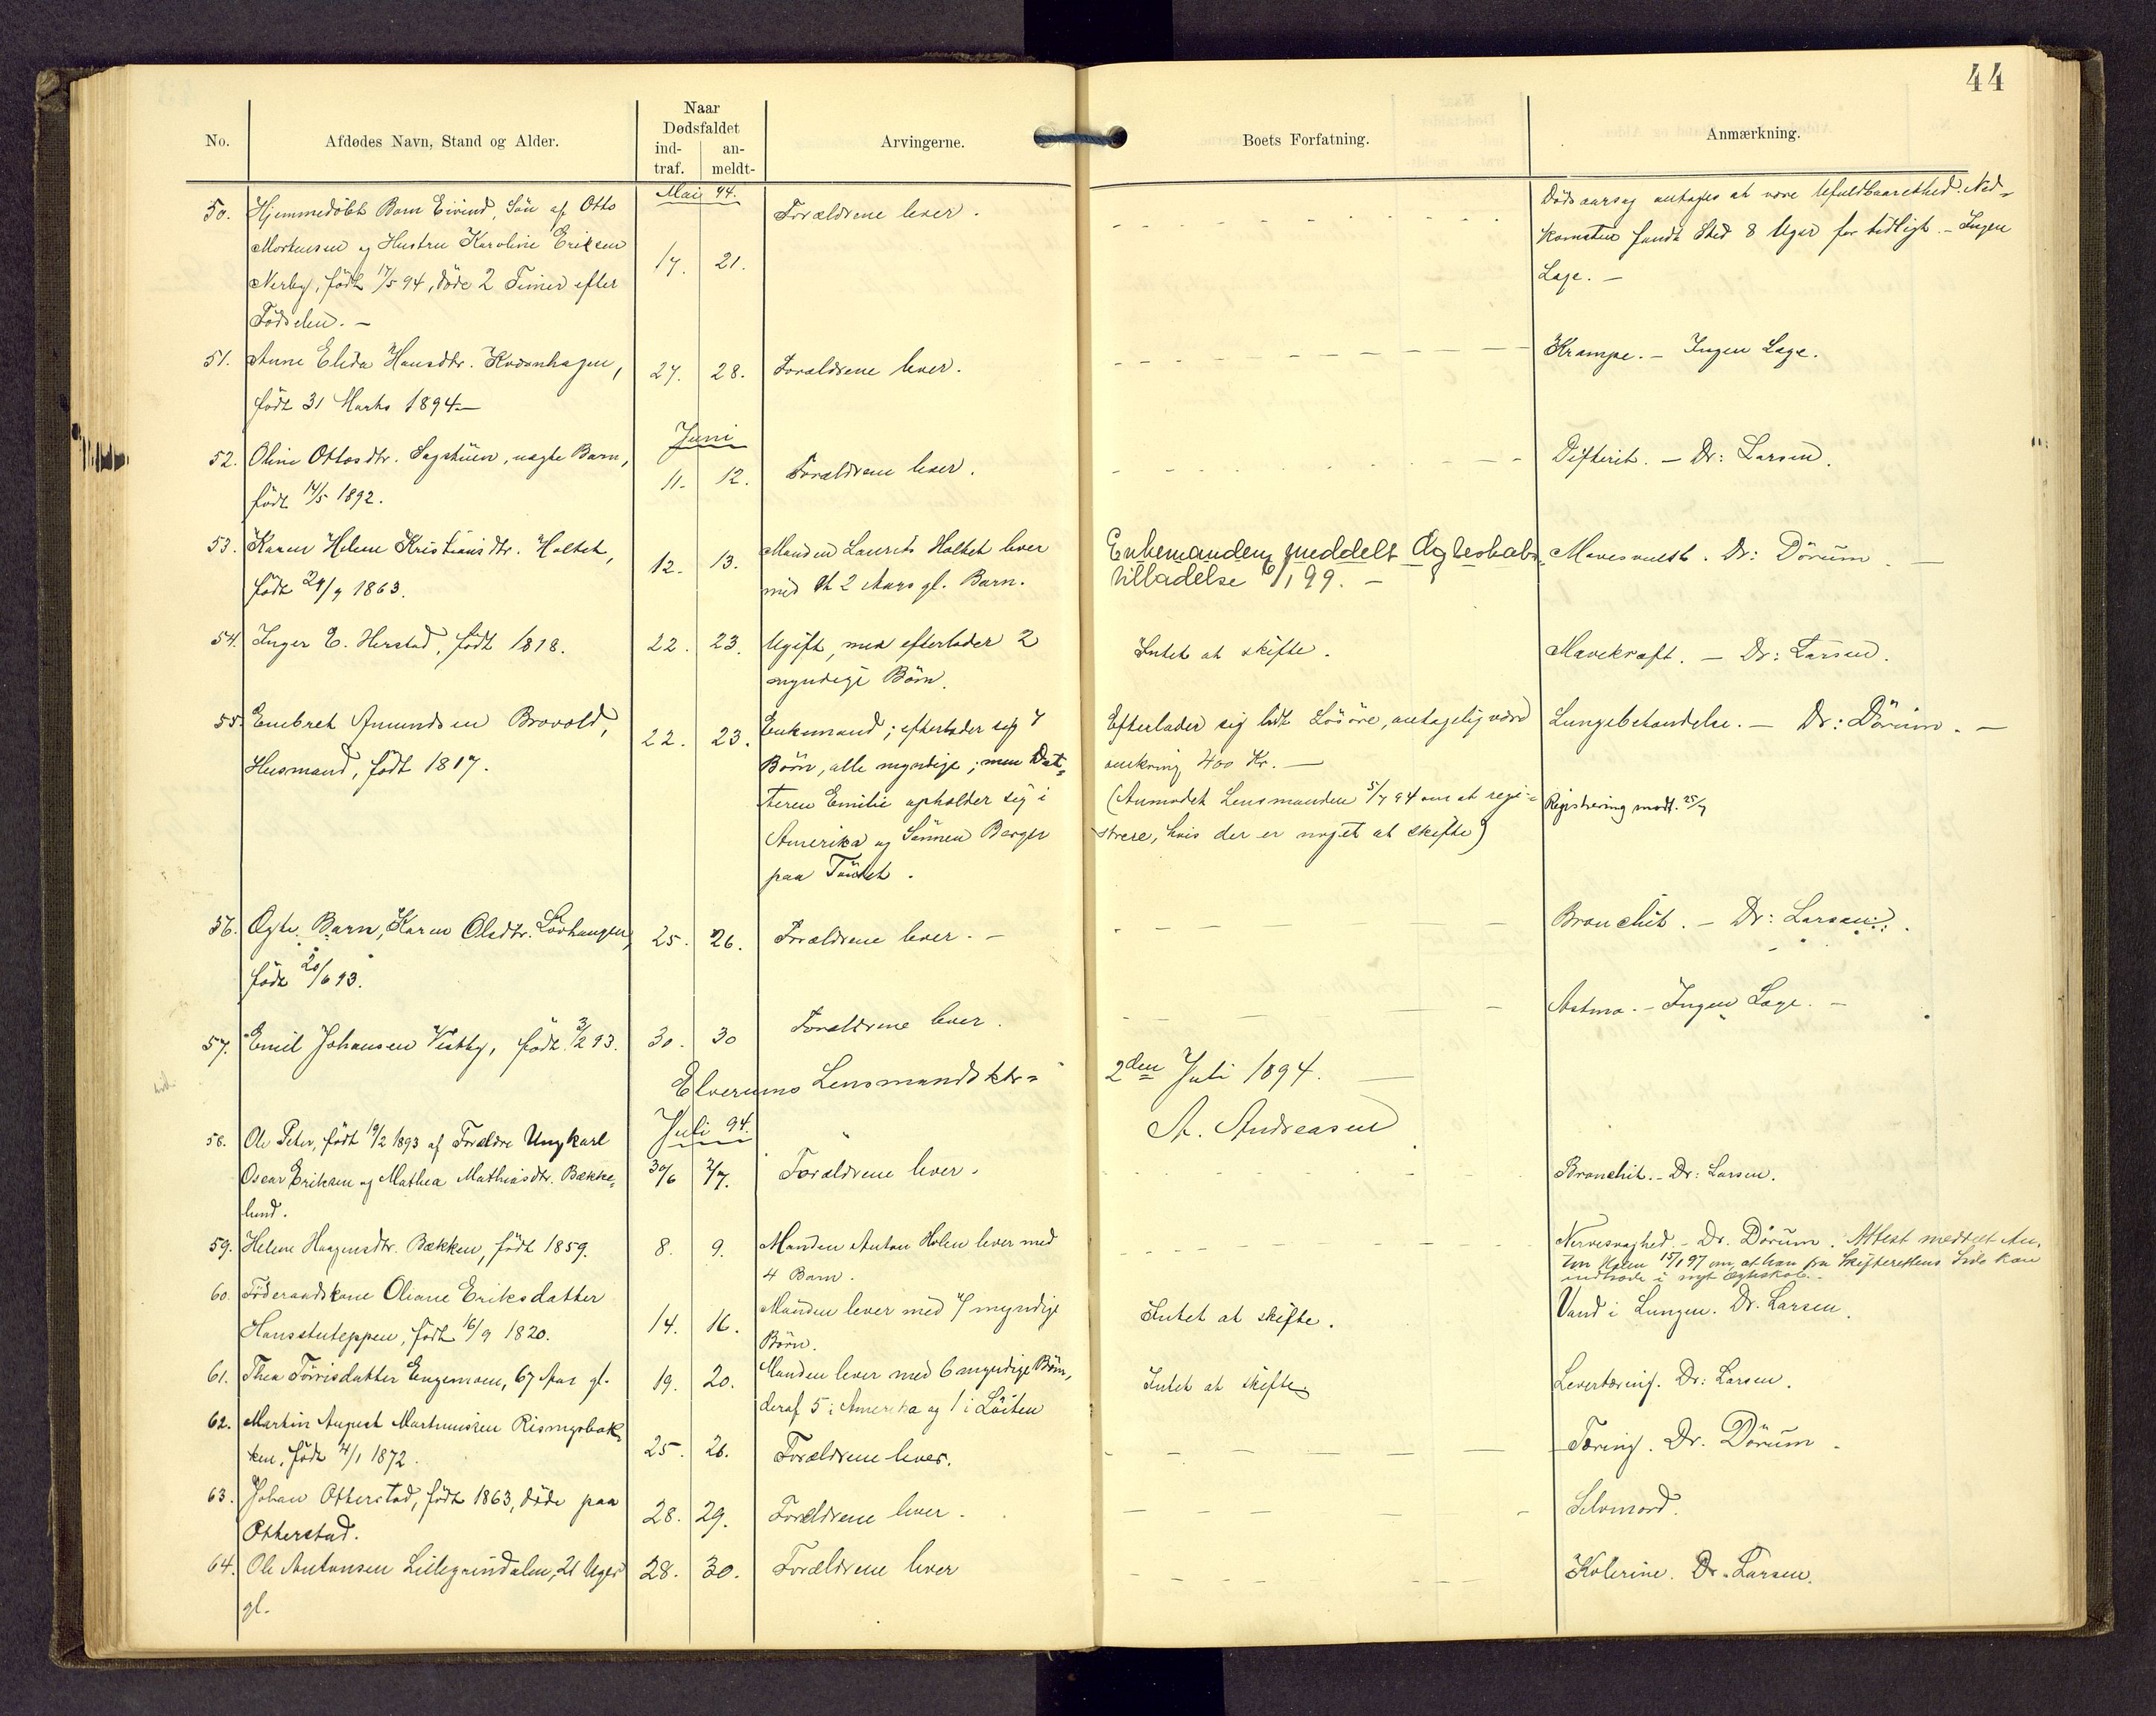 44
No.
Afdødes Navn, Stand og Alder.
Naar
Dødsfaldet
ind-
traf.
an-
meldt-
Arvingerne.
Boets Forfatning.
Anmærkning.
Mai 94.
50. Hjemmedøbt Barn Eivind, Søn af Otto
Mortensen og Hustru Karoline Eriksen
Nerby, født 17/5 94, døde 2 Timer efter
Fødselen. –
17. 21.
Forældrene lever.
Dødsaarsag antages at være Ufuldbaarethed. Ned-
komsten fandt Sted 8 Uger for tidligt. – Ingen
Læge. –
51. Anne Elida Hansdtr. Kværnhagen,
født 31 Marts 1894 –
27. 28. Forældrene lever.
Krampe. – Ingen Læge.
Juni
52. Oline Ottosdtr. Sagstuen, uægte Barn,
født 14/5 1892.
11. 12. Forældrene lever.
Difterit. – Dr: Larsen.
53. Karen Helene Kristiansdtr. Holtet,
født 24/9 1863.
12. 13. Manden Laurits Holtet lever
med et 2 Aars gl. Barn.
Enkemanden meddelt Ægteskabs-
tilladelse 6/1 99. –
Mavesvulst. Dr: Dørum. –
54. Inger E. Herstad, født 1818.
22. 23. Ugift, men efterlader 2
myndige Børn.
Intet at skifte.
Mavekræft. – Dr: Larsen.
55. Embret Amundsen Brovold,
Husmand, født 1817.
22. 23. Enkemand; efterlader sig 7
Børn, alle myndige; men Dat-
teren Emilie opholder sig i
Amerika og Sønnen Berger
paa Tönset.
Efterlader sig lidt Løsøre, antagelig værd
omkring 400 Kr. –
(Anmodet Lensmanden 5/7 94 om at regi-
strere, hvis der er noget at skifte)
Lungebetændelse. – Dr: Dørum. –
Registrering modt. 25/7
56. Ægte Barn, Karen Olsdtr. Løvhaugen,
født 20/6 93.
25. 26. Forældrene lever. –
Bronchit. – Dr: Larsen.
57. Emil Johansen Vestby, født 3/2 93.
30. 30 Forældrene lever.
Astma. – Ingen Læge. –
Elverums Lensmandsktr. 2den Juli 1894.
A. Andreasen
Juli 94.
58. Ole Peter, født 19/2 1893 af Forældre Ungkarl
Oscar Eriksen og Mathea Mathiasdtr. Bække-
lund.
30/6 2/7. Forældrene lever.
Bronchit. – Dr: Larsen.
59. Helene Haagensdtr. Bækken, født 1859.
8. 9. Manden Anton Holen lever med
4 Barn.
Nervesvaghed. – Dr. Dørum. Attest meddelt An-
ton Holen 15/1 97 om, at han fra Skifterettens Side kan
indtræde i nyt Ægteskab. –
60. Føderaadskone Oliane Eriksdatter
Hansstuteppen, født 16/9 1820.
14. 16. Manden lever med 7 myndige
Børn.
Intet at skifte.
Vand i Lungen. Dr. Larsen.
61. Thea Tørrisdatter Engemoen, 67 Aar gl.
19. 20. Manden lever med 6 myndige Børn,
deraf 5 i Amerika og 1 i Løiten
Intet at skifte
Levertæring. Dr: Larsen.
62. Martin August Martinusen Risingsbak-
ken, født 4/1 1872.
25. 26. Forældrene lever.
Tæring. Dr. Dørum.
63. Johan Otterstad, født 1863, døde paa
Otterstad.
28. 29. Forældrene lever.
Selvmord.
64. Ole Antonsen Lillegrindalen, 21 Uger
gl.
28. 30. Forældrene lever
Kolerine. Dr. Larsen.